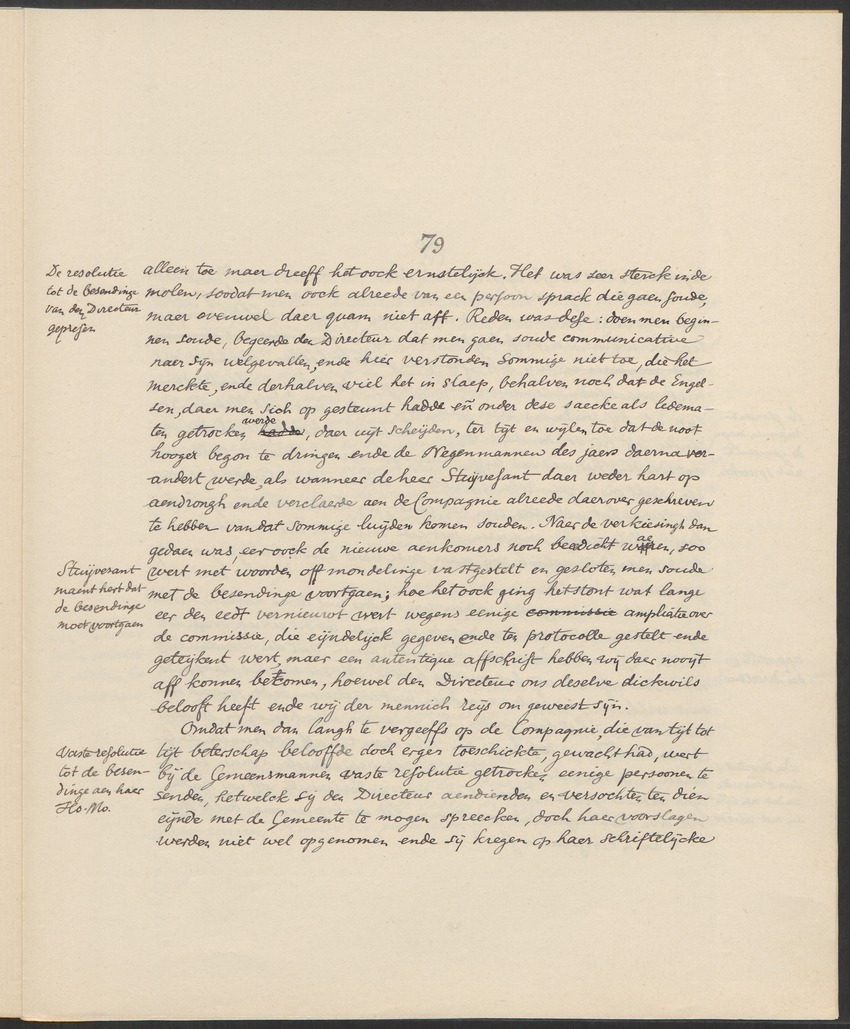 79
De resolutie
tot de besendinge
van den Directeur
gepresen
alleen toe maer dreeff het oock ernstelijck. Het was seer sterck in de
molen, soodat men oock alreede van een persoon sprack die gaen soude,
maer evenwel daer quam niet aff. Reden was dese: doen men begin-
nen soude, begeerde den Directeur dat men gaen soude communicative
naer sijn welgevallen, ende hier verstonden sommige niet toe, die het
merckte, ende derhalven viel het in slaep, behalven noch dat de Engel-
sen, daer men sich op gesteunt hadde en̄ onder dese saecke als ledema-
ten getrocken werde, daer uijt scheijden, ter tijt en wijlen toe dat de noot
hooger begon te dringen ende de Negenmannen des jaers daerna ver-
andert werde, als wanneer de heer Stuijvesant daer weder hart op
aendrongh ende verclaerde aen de Compagnie alreede daerover geschreven
te hebben van dat sommige luijden komen souden. Naer de verkiesingh dan
gedaen was, eer oock de nieuwe aenkomers noch beëdicht waren, soo
Stuijvesant
maent hert dat
de besendinge
moet voortgaen
wert met woorden off mondelinge vastgestelt en gesloten men soude
met de besendinge voortgaen; hoe het oock ging het stont wat lange
eer den eedt vernieuwt wert wegens eenige commissie ampliatie over
de commissie, die eijndelijck gegeven ende ten protocolle gestelt ende
geteijkent wert, maer een autentique affschrift hebben wij daer nooijt
aff konnen bekomen, hoewel den Directeur ons deselve dickwils
belooft heeft ende wij der mennich reijs om geweest sijn.
Omdat men dan langh te vergeeffs op de Compagnie, die van tijt tot
Vaste resolutie
tot de besen-
dinge aen haer
Ho. Mo.
tijt beterschap belooffde doch erger toeschickte, gewacht had, wert
bij de Gemeensmannen vaste resolutie getrocken eenige persoonen te
senden, hetwelck sij den Directeur aendienden en versochten ten dien
eijnde met de Gemeente te mogen spreecken, doch haer voorslagen
werden niet wel opgenomen ende sij kregen op haer schriftelijcke